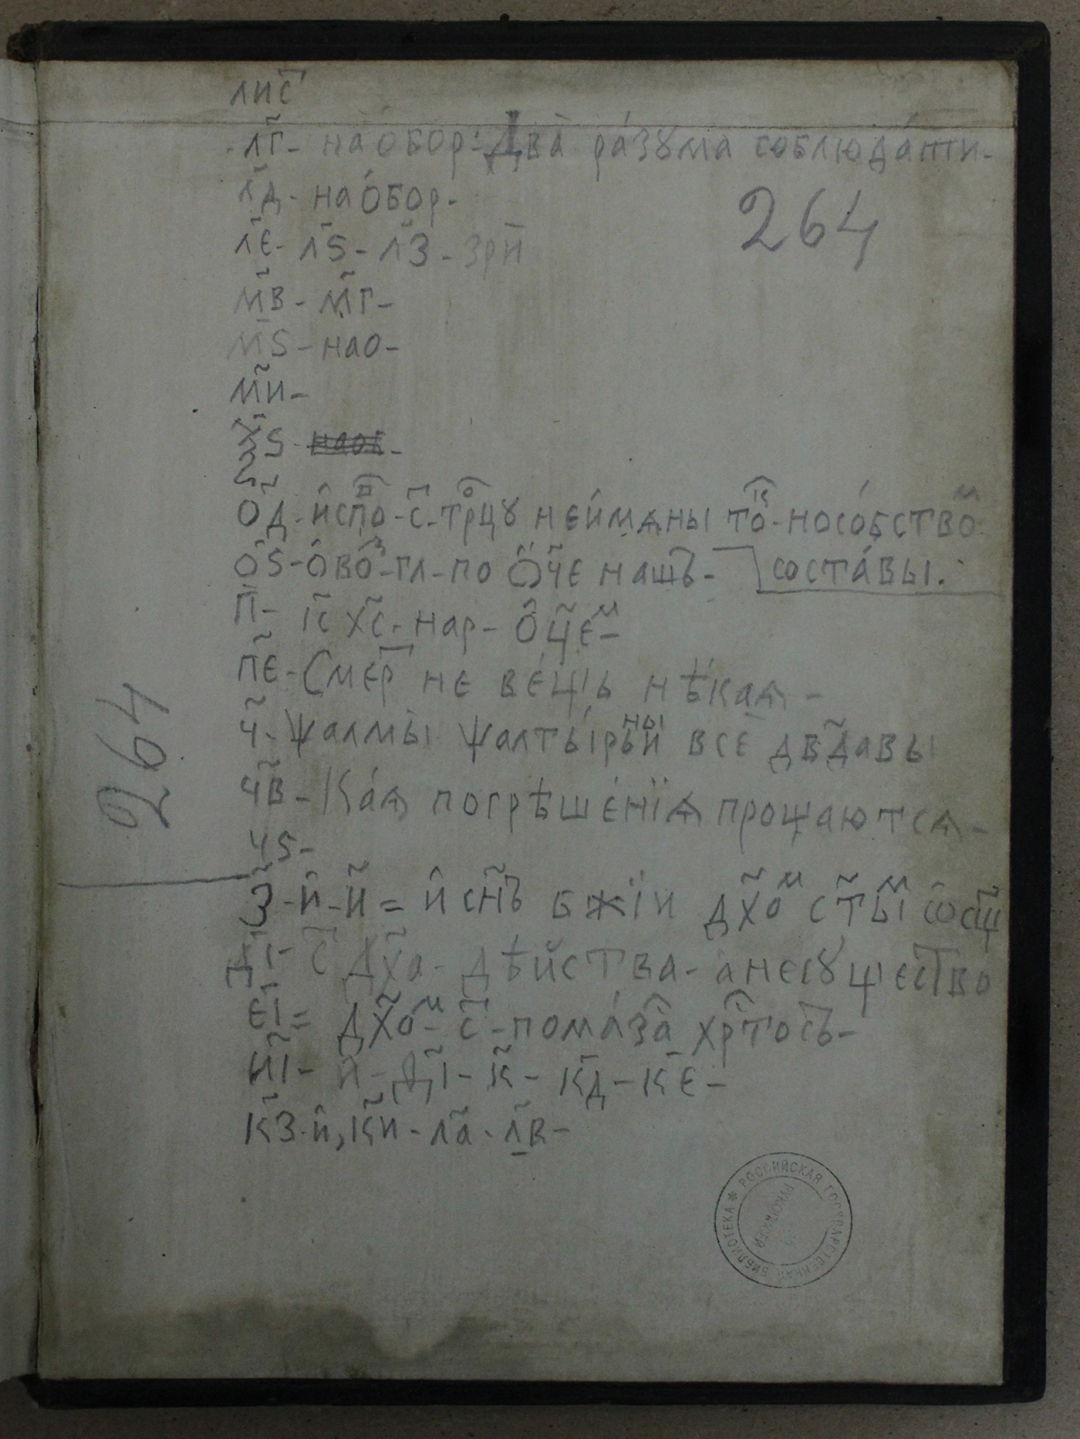 лис
л҃г - наобор: Два̀ ра́зума соблюда́ти -
л҃д - нао́бор -
л҃є - л҃ѕ - л҃з - зрѝ
264
м҃в - м҃г -
м҃ѕ - нао -
м҃и -
о҃д - и҆спо - с - трцꙋ неи́мѧны то̑ - но со́бство
о҃ѕ - ѻ҆во - гл - по ѻ҆́ч҃е нашъ - соста́вы.
п҃ - і҃с х҃с - нар - ѻ҆ц҃е -
п҃є - Смер не ве́щь нѣ́каѧ -
ч҃ - ѱалмы̀ ѱалты́рныи всѐ дв҃давы
ч҃в - Ка́ѧ погрѣше́нїѧ прощаютсѧ -
264
ч҃ѕ -
з҃ - и҆ - и҃ = и҆ сн҃ъ бж҃їи дх҃о с҃ты
д҃і - с дх҃а - дѣйства - а несꙋщество
є҃і = дх҃о - с - пома́за хр҃тосъ -
и҃і - и҆ - д҃і - к҃ - к҃д - к҃є -
к҃з - и҆, к҃и - л҃а - л҃в -
РОССИЙСКАЯ ГОСУДАРСТВЕННАЯ БИБЛИОТЕКА